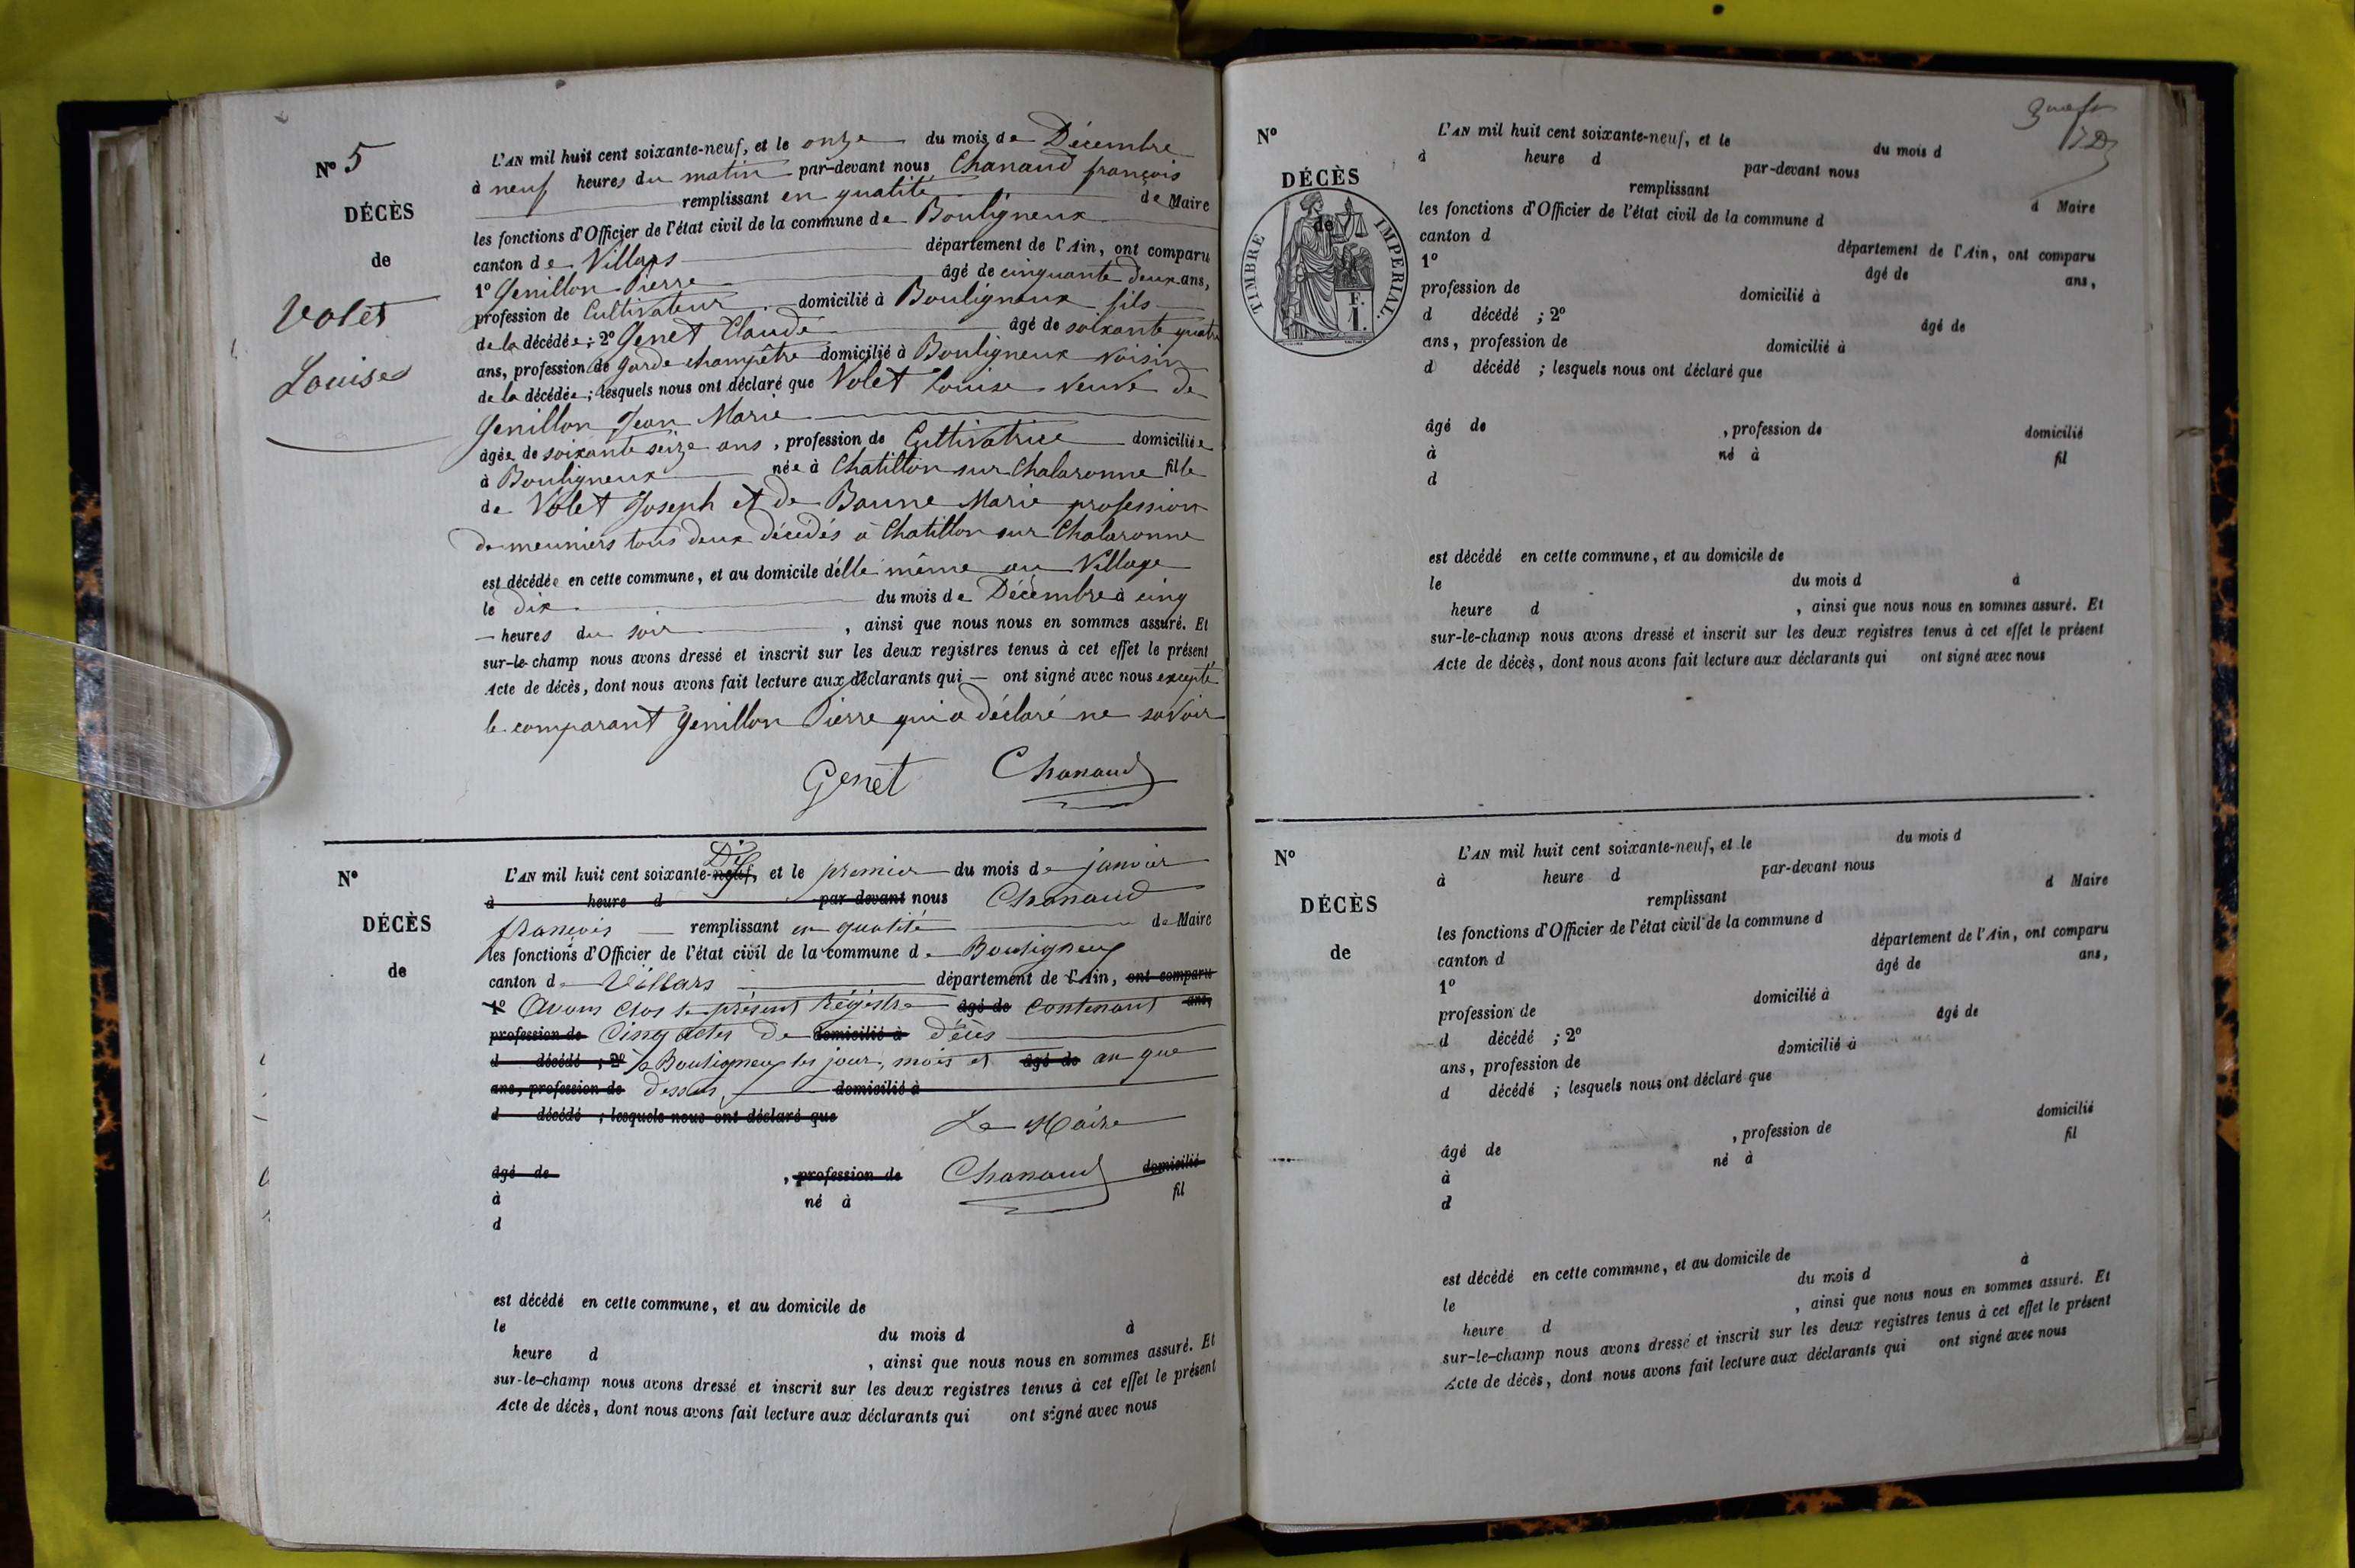 N° 5
DÉCÈS
de
Volet
Louise
L'AN mil huit cent soixante-neuf, et le onze du mois de Décembre
à neuf heures du matin par-devant nous Chanaud françois
remplissant en qualité de Maire
les fonctions d'Officier de l'état civil de la commune de Bouligneux
canton de Villars département de l'Ain, ont comparu
1° Genillon Pierre âgé de cinquante deux ans,
profession de Cultivateur domicilié à Bouligneux fils
de la décédée; 2° Genet Claude âgé de soixante quatre
ans, profession de garde champêtre domicilié à Bouligneux voisin
de la décédée; lesquels nous ont déclaré que Volet Louise veuve de
Genillon Jean Marie
âgée de soixante seize ans, profession de Cultivatrice domiciliée
à Bouligneux née à Chatillon sur Chalaronne fille
de Volet Joseph et de Banne Marie profession
de meuniers tous deux décédés à Chatillon sur Chalaronne
est décédée en cette commune, et au domicile d'elle même au Village
le dix du mois de Décembre à cinq
heures du soir, ainsi que nous nous en sommes assuré. Et
sur-le-champ nous avons dressé et inscrit sur les deux registres tenus à cet effet le présent
Acte de décès, dont nous avons fait lecture aux déclarants qui — ont signé avec nous excepté
le comparant Genillon Pierre qui a déclaré ne savoir
Genet Chanaud
N°
DÉCÈS
de
L'AN mil huit cent soixante-neuf, Dix et le premier du mois de janvier
à heure d par-devant nous Chanaud
françois remplissant en qualité de Maire
les fonctions d'Officier de l'état civil de la commune de Bouligneux
canton de Villars département de l'Ain, ont comparu
1° Avons clos le présent Régistre âgé de contenant ans,
profession de Cinq actes de domicilié à décès
d décédé ; 2° à Bouligneux les jour, mois et âgé de an que
ans, profession de dessus, domicilié à
d décédé ; lesquels nous ont déclaré que
Le Maire
âgé de , profession de Chanaud domicilié
à né à fil
d
est décédé en cette commune, et au domicile de
le du mois d à
heure d , ainsi que nous nous en sommes assuré. Et
sur-le-champ nous avons dressé et inscrit sur les deux registres tenus à cet effet le présent
Acte de décès, dont nous avons fait lecture aux déclarants qui ont signé avec nous
N°
DÉCÈS
de
TIMBRE IMPERIAL.
F.
I.
L'AN mil huit cent soixante-neuf, et le du mois d
à heure d par-devant nous
remplissant d Maire
les fonctions d'Officier de l'état civil de la commune d
canton d département de l'Ain, ont comparu
1° âgé de ans,
profession de domicilié à
d décédé ; 2° âgé de
ans, profession de domicilié à
d décédé ; lesquels nous ont déclaré que
âgé de , profession de domicilié
à né à fil
d
est décédé en cette commune, et au domicile de
le du mois d à
heure d , ainsi que nous nous en sommes assuré. Et
sur-le-champ nous avons dressé et inscrit sur les deux registres tenus à cet effet le présent
Acte de décès, dont nous avons fait lecture aux déclarants qui ont signé avec nous
N°
DÉCÈS
de
L'AN mil huit cent soixante-neuf, et le du mois d
à heure d par-devant nous
remplissant d Maire
les fonctions d'Officier de l'état civil de la commune d
canton d département de l'Ain, ont comparu
1° âgé de ans,
profession de domicilié à
d décédé ; 2° âgé de
ans, profession de domicilié à
d décédé ; lesquels nous ont déclaré que
âgé de , profession de domicilié
à né à fil
d
est décédé en cette commune, et au domicile de
le du mois d à
heure d , ainsi que nous nous en sommes assuré. Et
sur-le-champ nous avons dressé et inscrit sur les deux registres tenus à cet effet le présent
Acte de décès, dont nous avons fait lecture aux déclarants qui ont signé avec nous